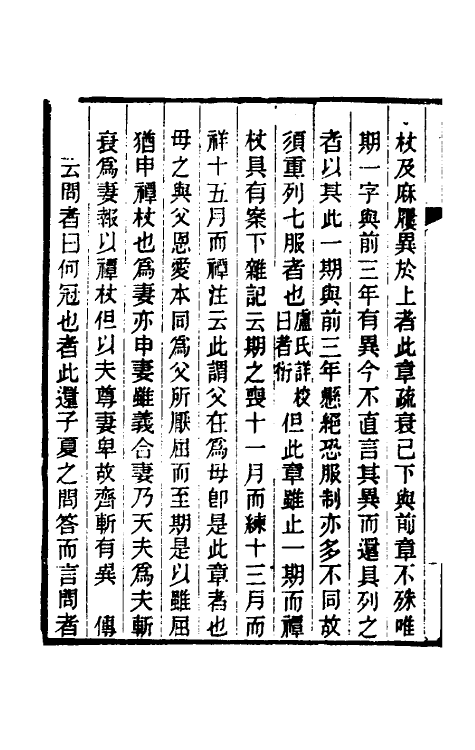 杖及麻屨異於上者此章疏衰已下與前章不殊唯
期一字與前三年有異今不直言其異而還具列之
者以其此一期與前三年懸絕恐服制亦多不同故
須重列七服者也盧氏詳校曰者衍但此章雖止一期而禫
杖具有案下雜記云期之喪十一月而練十三月而
祥十五月而禫注云此謂父在爲母卽是此章者也
母之與父恩愛本同爲父所厭屈而至期是以雖屈
猶申禫杖也爲妻亦申妻雖義合妻乃天夫爲夫斬
衰爲妻報以禫杖但以夫尊妻卑故齊斬有異　傳
云問者曰何冠也者此還子夏之問答而言問者